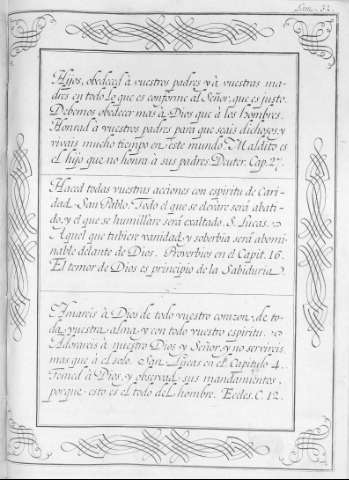 Lam. 32.
Hijos, obedeced à vuestros padres y à vuestras ma-
dres en todo lo que es conforme al Señor, que es justo.
Debemos obedecer mas à Dios que à los hombres.
Honrad à vuestros padres para que seais dichosos y
vivais mucho tiempo en este mundo. Maldito es
el hijo que no honra à sus padres Deuter. Cap. 27.
Haced todas vuestras acciones con espiritu de Cari-
dad. San Pablo. Todo el que se elevare será abati-
do, y el que se humillare será exaltado. S. Lucas.
Aquel que tubiere vanidad, y soberbia será abomi-
nable delante de Dios. Proverbios en el Capit. 16.
El temor de Dios es principio de la Sabiduria.
Amareis à Dios de todo vuestro corazon, de to-
da vuestra alma, y con todo vuestro espiritu.
Adorareis à nuestro Dios y Señor, y no servireis
mas que à el solo. San Lucas en el Capitulo 4.
Temed à Dios, y observad sus mandamientos,
porque esto es el todo del hombre. Eccles. C. 12.